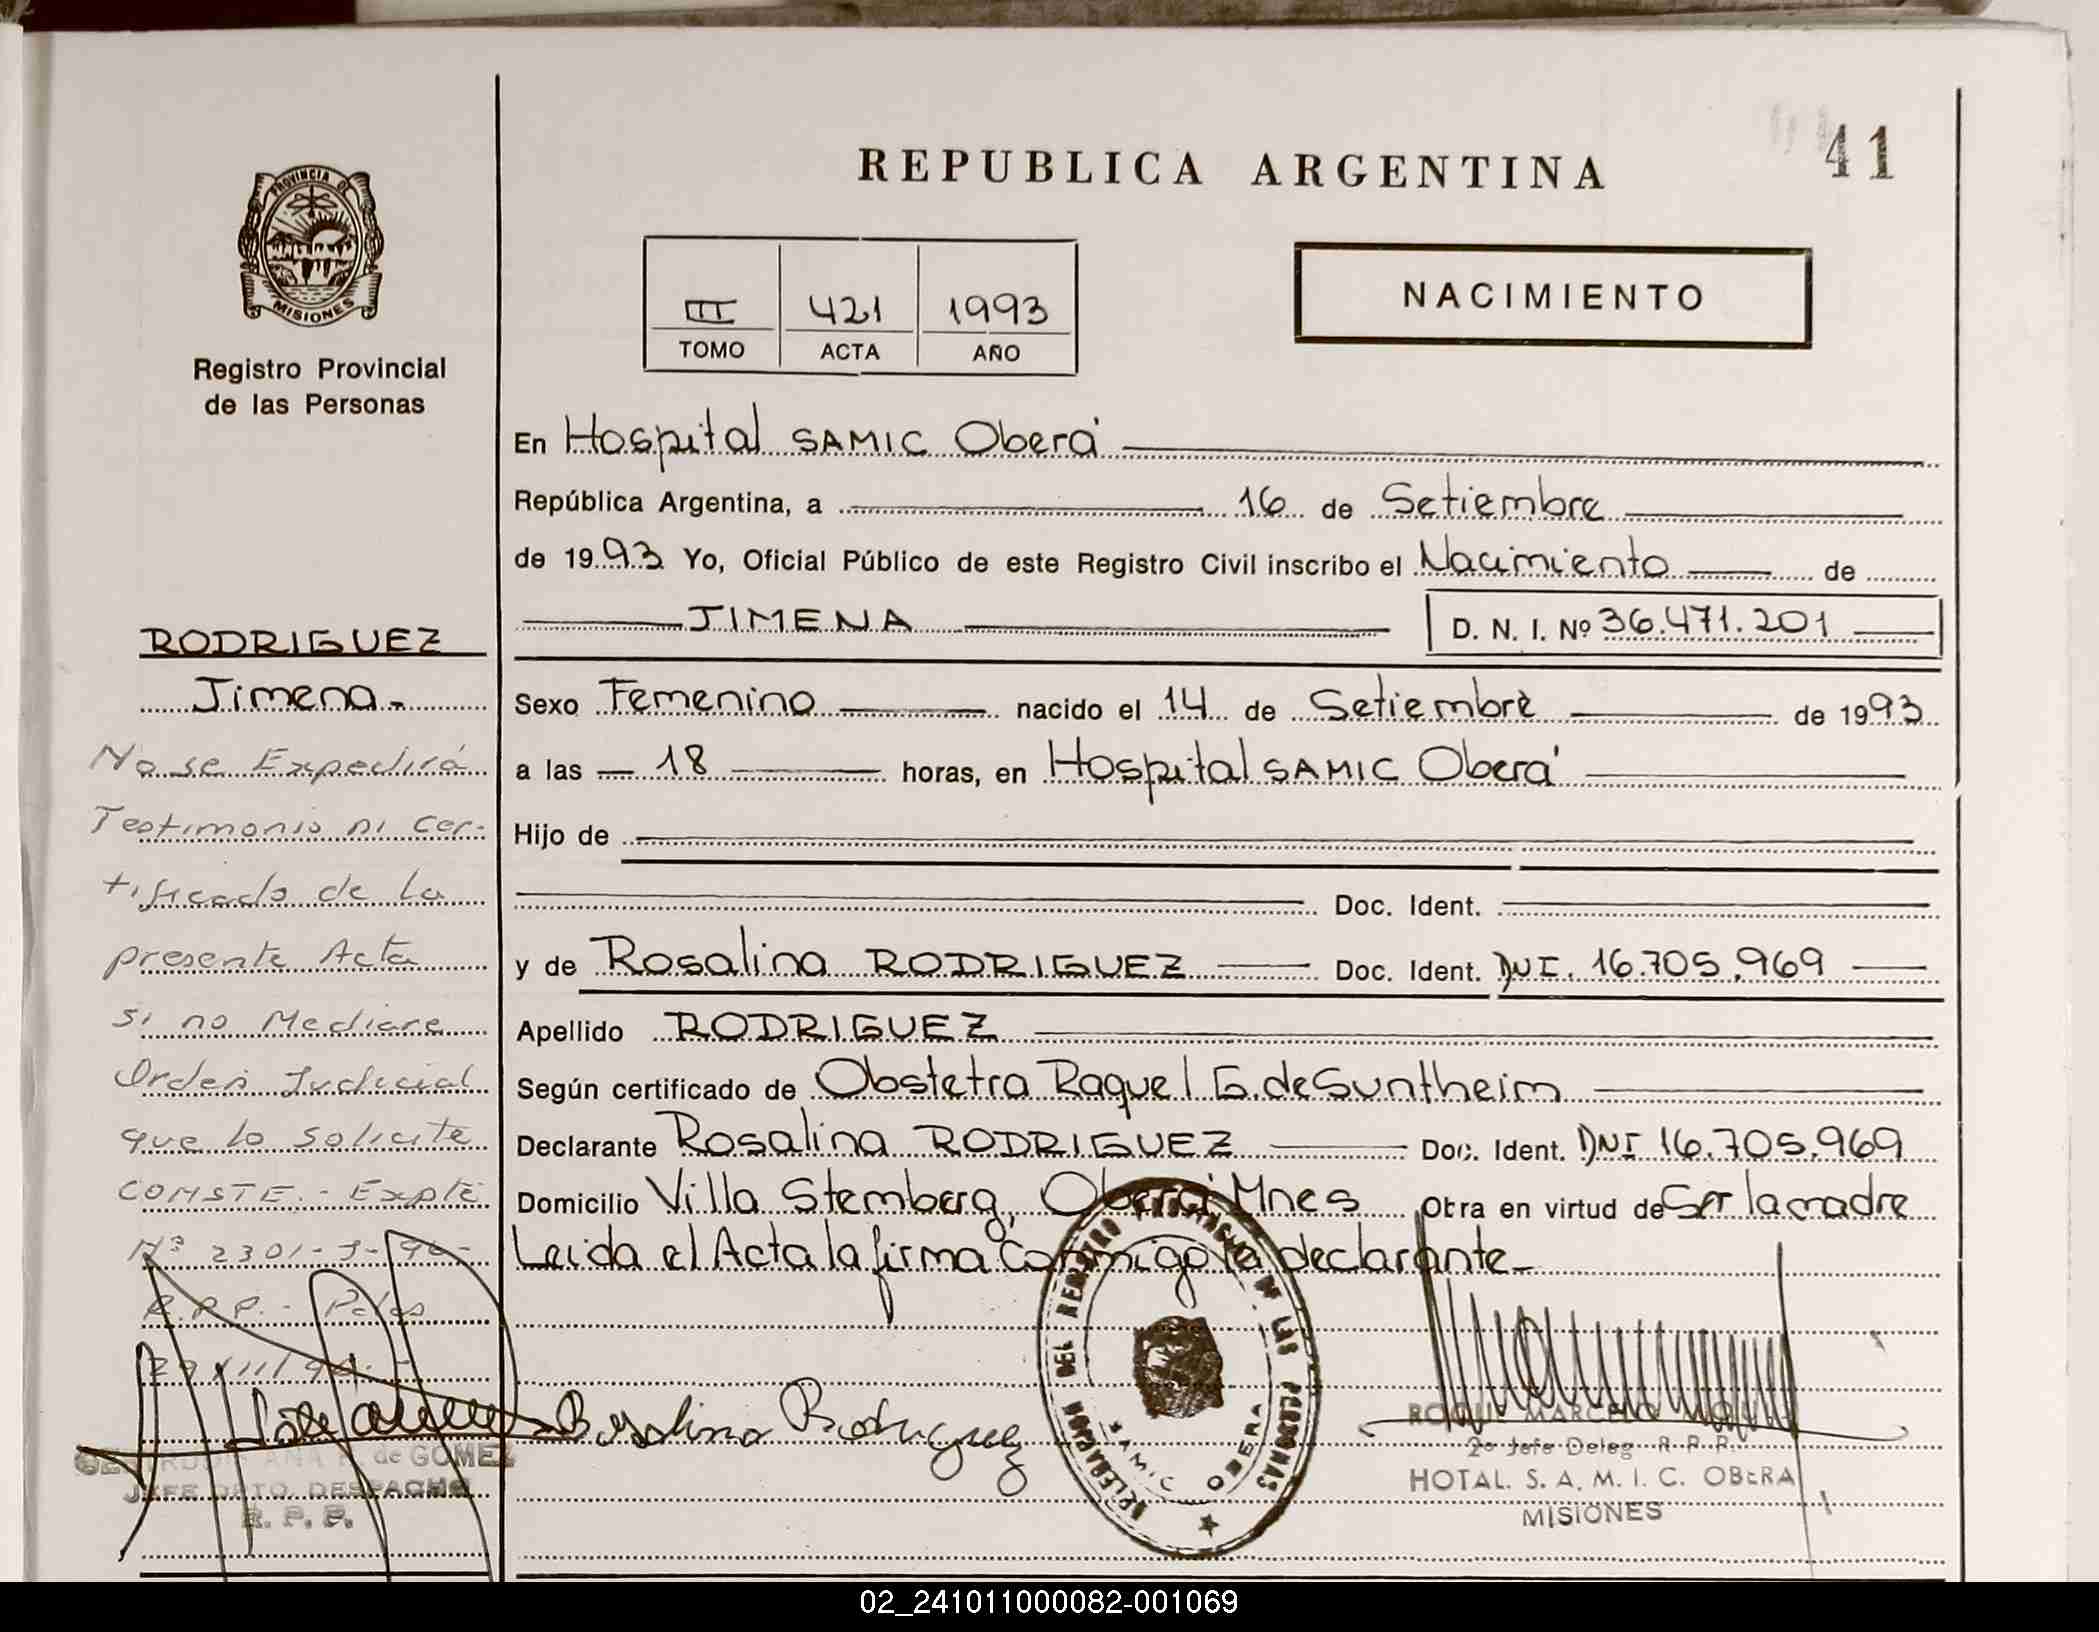 REPUBLICA ARGENTINA
41
PROVINCIA DE
MISIONES
Registro Provincial
de las Personas
III 421 1993
TOMO ACTA AÑO
NACIMIENTO
En Hospital SAMIC Oberá
República Argentina, a 16 de Setiembre
de 1993 Yo, Oficial Público de este Registro Civil inscribo el Nacimiento de
JIMENA D. N. I. Nº 36.471.201
Sexo Femenino nacido el 14 de Setiembre de 1993
a las 18 horas, en Hospital SAMIC Oberá
Hijo de
Doc. Ident.
y de Rosalina RODRIGUEZ Doc. Ident. DNI. 16.705.969
Apellido RODRIGUEZ
Según certificado de Obstetra Raquel G. de Suntheim
Declarante Rosalina RODRIGUEZ Doc. Ident. DNI 16.705.969
Domicilio Villa Stemberg, Oberá, Mnes Obra en virtud de Ser la madre
Leida el Acta la firma conmigo la declarante-
RODRIGUEZ
Jimena.
No se Expedirá
Testimonio ni cer-
tificado de la
presente Acta
si no Mediare
Orden Judicial
que lo solicite
CONSTE.- Expte
Nº 2301-J-94-
R.P.P.- Pdas
29/11/94.-
Rosalina Rodriguez
ANA de GOMEZ
JEFE DPTO. DESPACHO
R. P. P.
DELEGACION DEL REGISTRO PROVINCIAL DE LAS PERSONAS
SAMIC OBERA
ROQUE MARCELO
2º Jefe Deleg. R. P. P.
HOTAL. S. A. M. I. C. OBERA
MISIONES
02_241011000082-001069